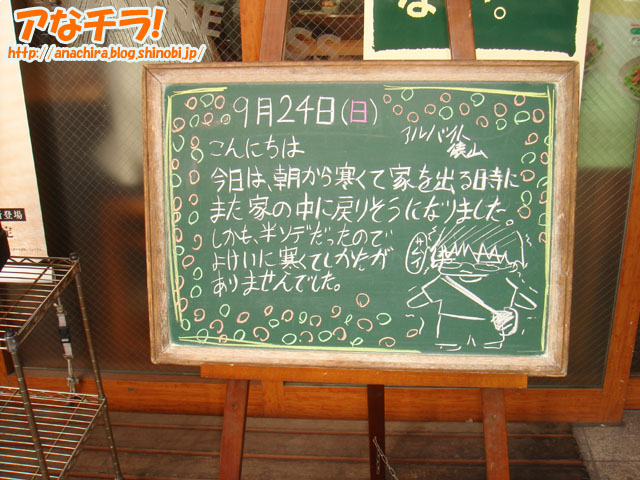 アなチラ!
http://anachira.blog.shinobi.jp/
な。
登場
定
9月24日(日)
アルバイト
俵山
こんにちは
今日は、朝から寒くて家を出る時に
また家の中に戻りそうになりました。
しかも、半ソデだったので
よけいに寒くてしかたが
ありませんでした。
サムイ